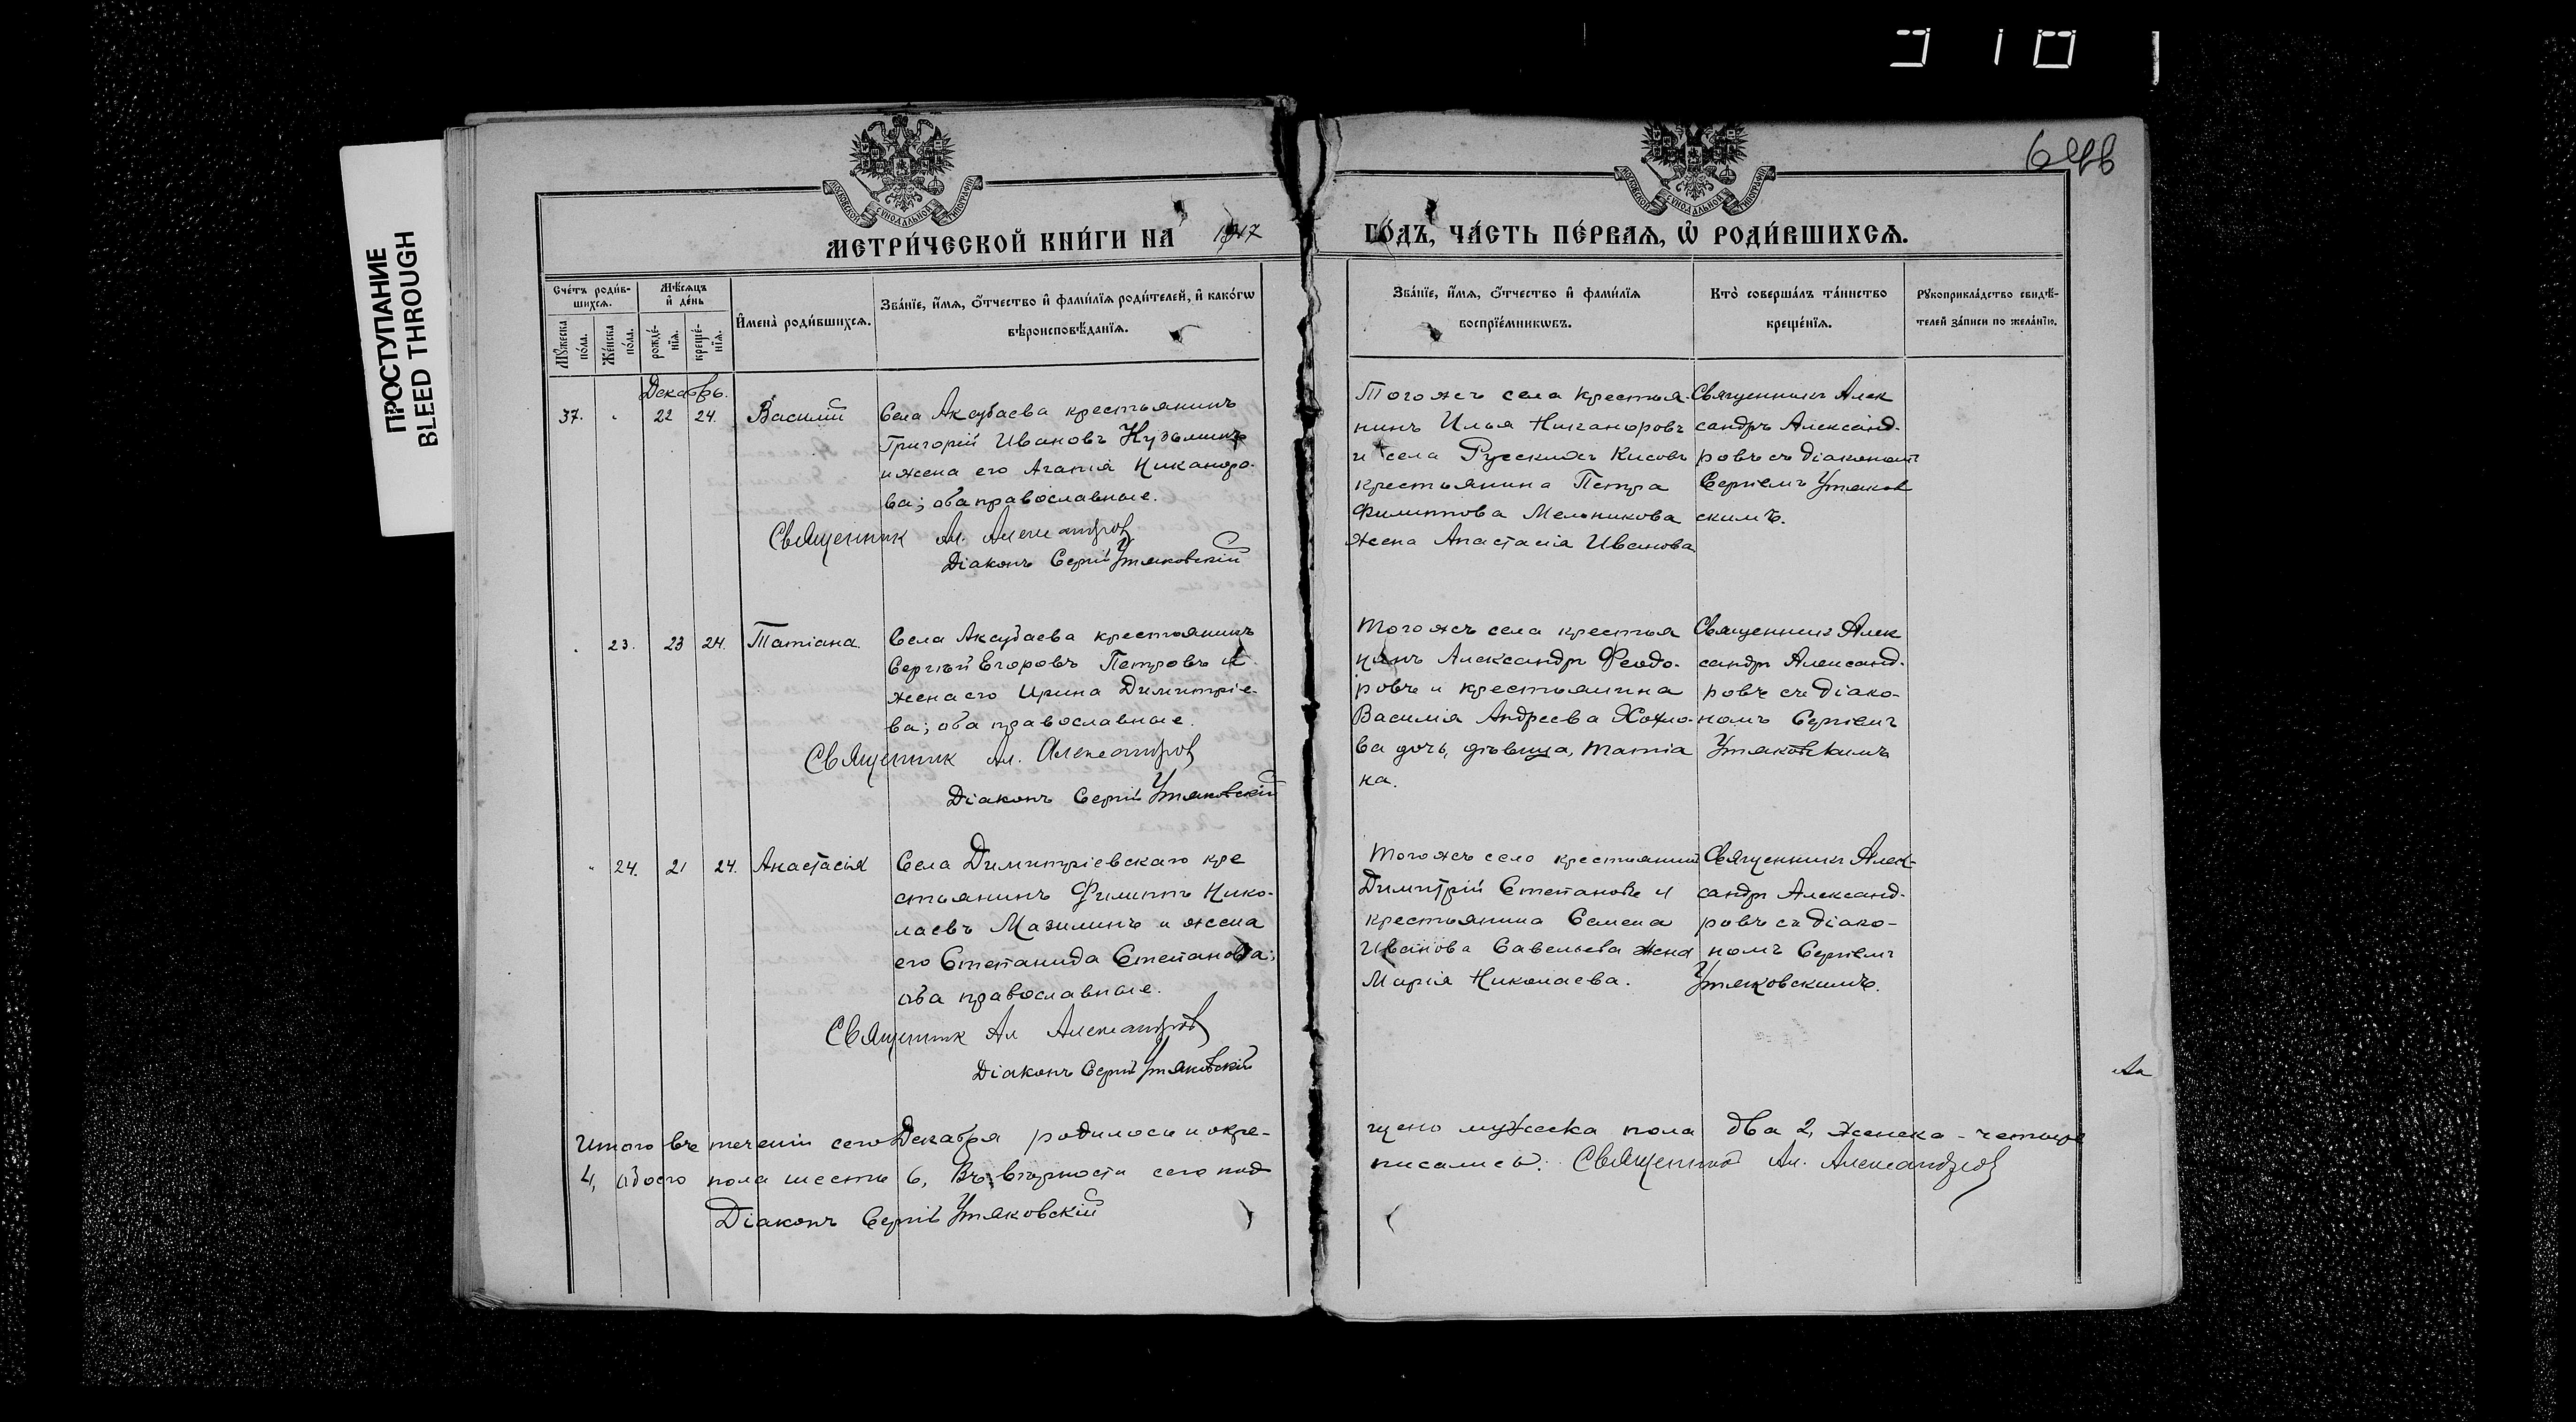 ПРОСТУПАНИЕ
BLEED THROUGH
МОСКОВСКОЙ СѴНОДАЛЬНОЙ ТИПОГРАФІИ
МОСКОВСКОЙ СѴНОДАЛЬНОЙ ТИПОГРАФІИ
МЕТРИ́ЧЕСКОЙ КНИ́ГИ НА 1917
ГО́ДЪ, ЧА́СТЬ ПЕ́РВАѦ, Ѡ҆ РОДИ́ВШИХСѦ.
Сче́тъ роди́в-
шихсѧ.
Мꙋ́жеска
по́ла.
Же́нска
по́ла.
Мѣ́сѧцъ
и҆ де́нь
рожде́-
нїѧ.
креще́-
нїѧ.
И҆мена̀ роди́вшихсѧ.
Зва́нїе, и҆́мѧ, ѻ҆́тчество и҆ фами́лїѧ роди́телей, и҆ како́гѡ
вѣроисповѣ́данїѧ.
Зва́нїе, и҆́мѧ, ѻ҆́тчество и҆ фами́лїѧ
воспрїе́мникѡвъ.
Кто̀ соверша́лъ та́инство
креще́нїѧ.
Рꙋкоприкла́дство свидѣ́-
телей за́писи по жела́нїю.
Декабрь.
37. " 22 24. Василій
Села Аксубаева крестьянинъ
Григорій Ивановъ Кузьминъ
и жена его Агапія Никаноро-
ва; оба православные.
Священник Ал Александров
Діаконъ Сергій Утяковскій
Того жъ села крестья-
нинъ Илья Никаноровъ
и села Русскихъ Кисовъ
крестьянина Петра
Филиппова Мельникова
жена Анастасія Иванова
Священникъ Алек
сандръ Александ-
ровъ съ діакономъ
Сергіемъ Утяков
скимъ.
. 23. 23 24. Татіана.
Села Аксубаева крестьянинъ
Сергѣй Егоровъ Петровъ и
жена его Ирина Димитріе-
ва; оба православные.
Священник Ал. Александров
Діаконъ Сергій Утяковскій
Того жъ села крестья
нинъ Александръ Феодо-
ровъ и крестьянина
Василія Андреева Хохло-
ва дочь, дѣвица, Татіа
на.
Священникъ Алек
сандръ Александ-
ровъ съ діако-
номъ Сергіемъ
Утяковскимъ
" 24. 21 24. Анастасія
Села Димитріевскаго кре
стьянинъ Филиппъ Нико-
лаевъ Мазилинъ и жена
его Степанида Степанова;
оба православные.
Священник Ал Александров
Діаконъ Сергій Утяковскій
Того жъ село крестьянин
Димитрій Степановъ и
крестьянина Семена
Иванова Савельева жена
Марія Николаева.
Священникъ Алек-
сандръ Александ-
ровъ съ діако-
номъ Сергіемъ
Утяковскимъ.
Итого въ теченіи сего Декабря родилось и окре-
щено мужеска пола два 2, женска - четыре
4, обоего пола шесть 6, Въ вѣрности сего под
писались: Священник Ал. Александров
Діаконъ Сергій Утяковскій